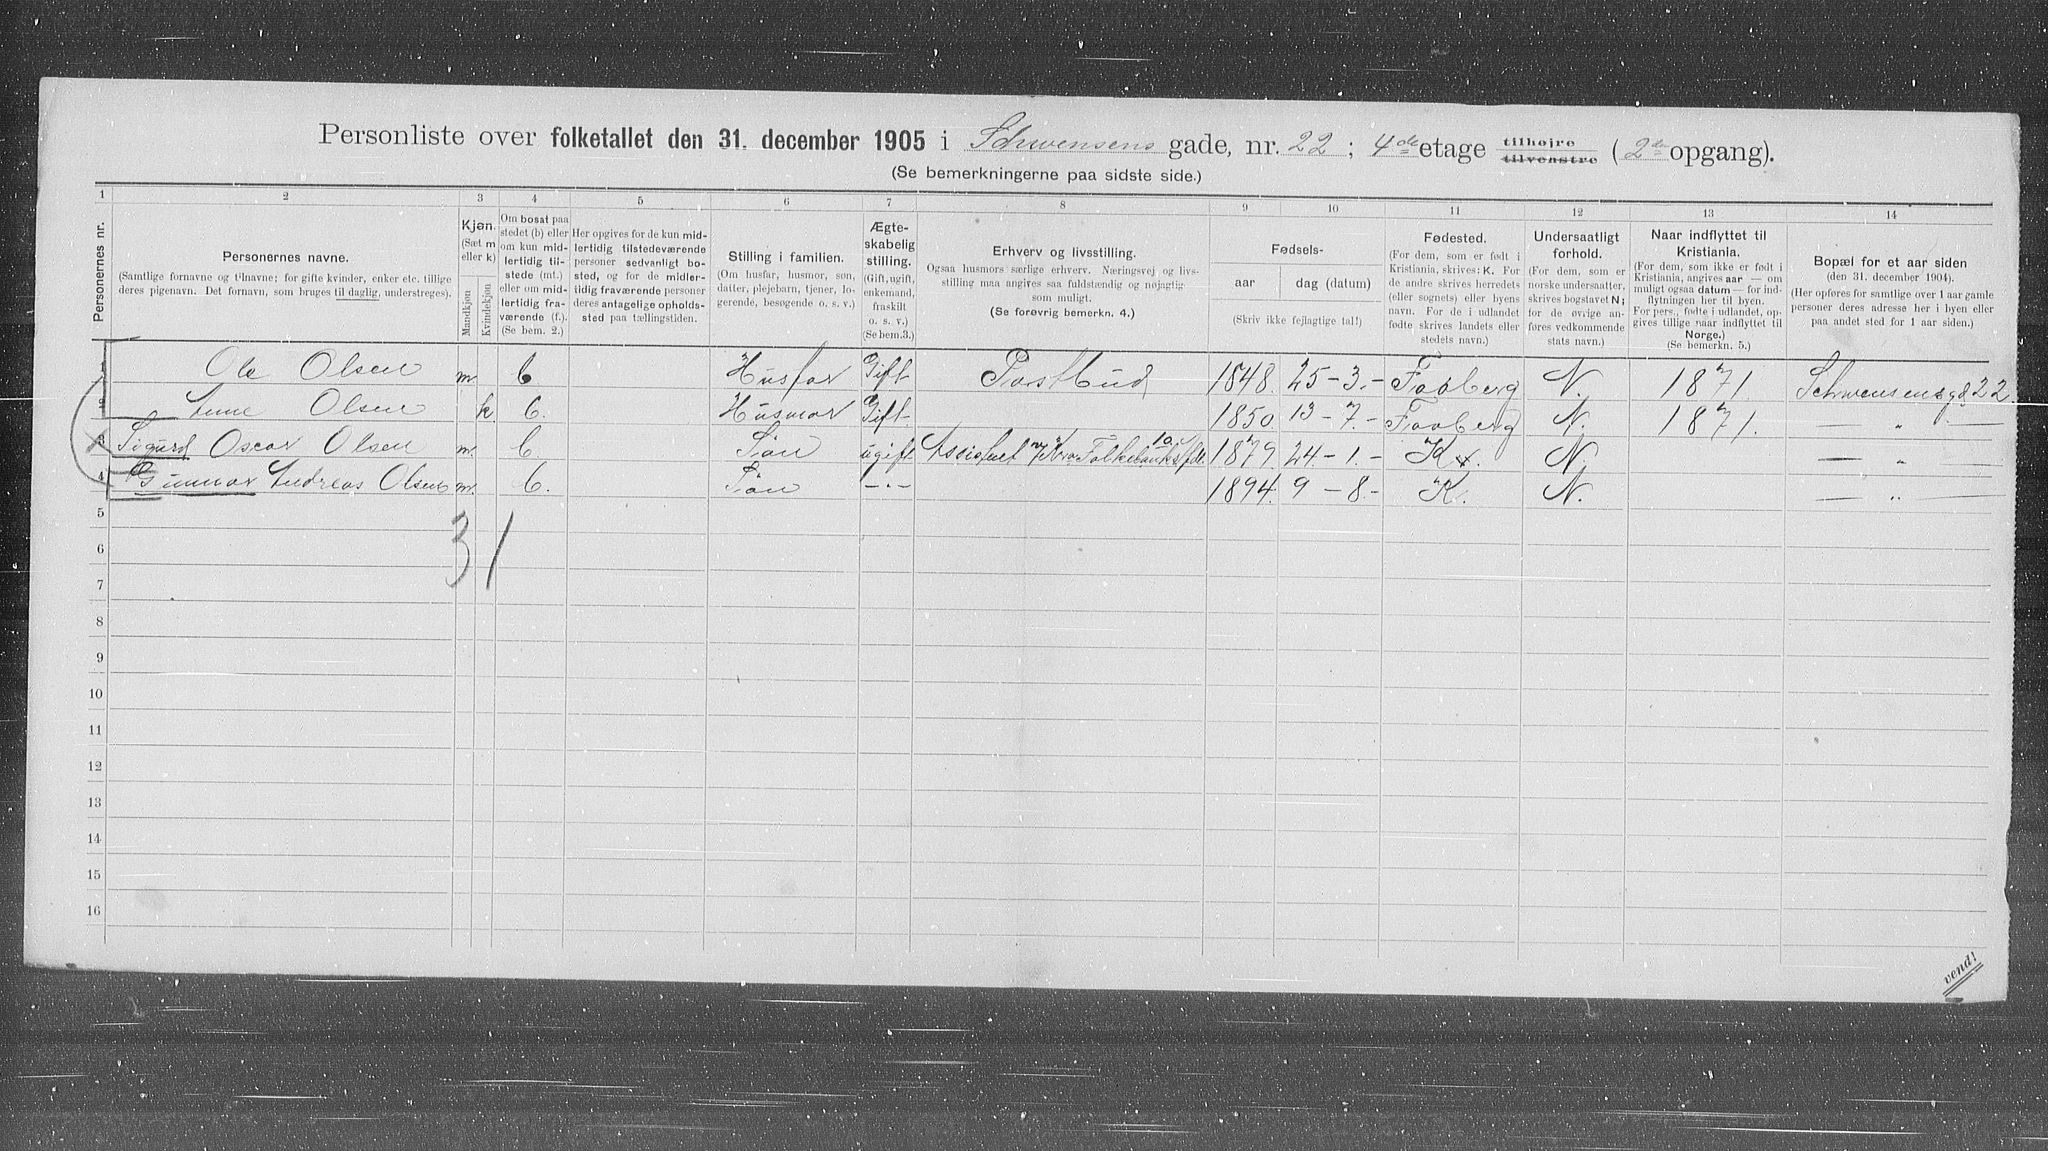 Personliste over folketallet den 31. december 1905 i Schwensens gade, nr. 22 ; 4de etage tilhøjre tilvenstre ( 2den opgang).
(Se bemerkningerne paa sidste side.)
1 2 3 4 5 6 7 8 9 10 11 12 13 14
Personernes nr.
Personernes navne.
(Samtlige fornavne og tilnavne; for gifte kvinder, enker etc. tillige
deres pigenavn. Det fornavn, som bruges til daglig, understreges).
Kjøn.
(Sæt m
eller k)
Mandkjøn
Kvindekjøn
Om bosat paa
stedet (b) eller
om kun mid-
lertidig til-
stede (mt.)
eller om mid-
lertidig fra-
værende (f.).
(Se bem. 2.)
Her opgives for de kun mid-
lertidig tilstedeværende
personer sedvanligt bo-
sted, og for de midler-
tidig fraværende personer
deres antagelige opholds-
sted paa tællingstiden.
Stilling i familien.
(Om husfar, husmor, søn,
datter, plejebarn, tjener, lo-
gerende, besøgende o. s. v.)
Ægte-
skabelig
stilling.
(Gift, ugift,
enkemand,
fraskilt
o. s. v.)
(Se bem.3.)
Erhverv og livsstilling.
Ogsaa husmors særlige erhverv. Næringsvej og livs-
stilling maa angives saa fuldstændig og nøjagtig
som muligt.
(Se forøvrig bemerkn. 4.)
Fødsels-
aar
dag (datum)
(Skriv ikke fejlagtige tal!)
Fødested.
(For dem, som er født i
Kristiania, skrives: K. For
de andre skrives herredets
(eller sognets) eller byens
navn. For de i udlandet
fødte skrives landets eller
stedets navn.)
Undersaatligt
forhold.
(For dem, som er
norske undersaatter,
skrives bogstavet N;
for de øvrige an-
føres vedkommende
stats navn.)
Naar indflyttet til
Kristiania.
(For dem, som ikke er født i
Kristiania, angives aar — om
muligt ogsaa datum — for ind-
flytningen her til byen.
For pers., fødte i udlandet, op-
gives tillige naar indflyttet til
Norge.)
(Se bemerkn. 5.)
Bopæl for et aar siden
(den 31. december 1904).
(Her opføres for samtlige over 1 aar gamle
personer deres adresse her i byen eller
paa andet sted for 1 aar siden.)
1 Ole Olsen m. b Husfar Gift Postbud 1848. 25-3.- Faaberg N. 1871. Schwensensgd 22.
2 Anne Olsen k b. Husmor Gift 1850. 13-7.- Faaberg N. 1871. — „ —
3 Sigurd Oscar Olsen m. b. Søn ugift Assistent v/ Kra Folkebanks 1879. 24-1.- K. N. — „ —
4 Gunnar Andreas Olsen m. b. Søn —„— 1894. 9-8.- K. N. — „ —
5
3 1
6
7
8
9
10
11
12
13
14
15
16
vend!